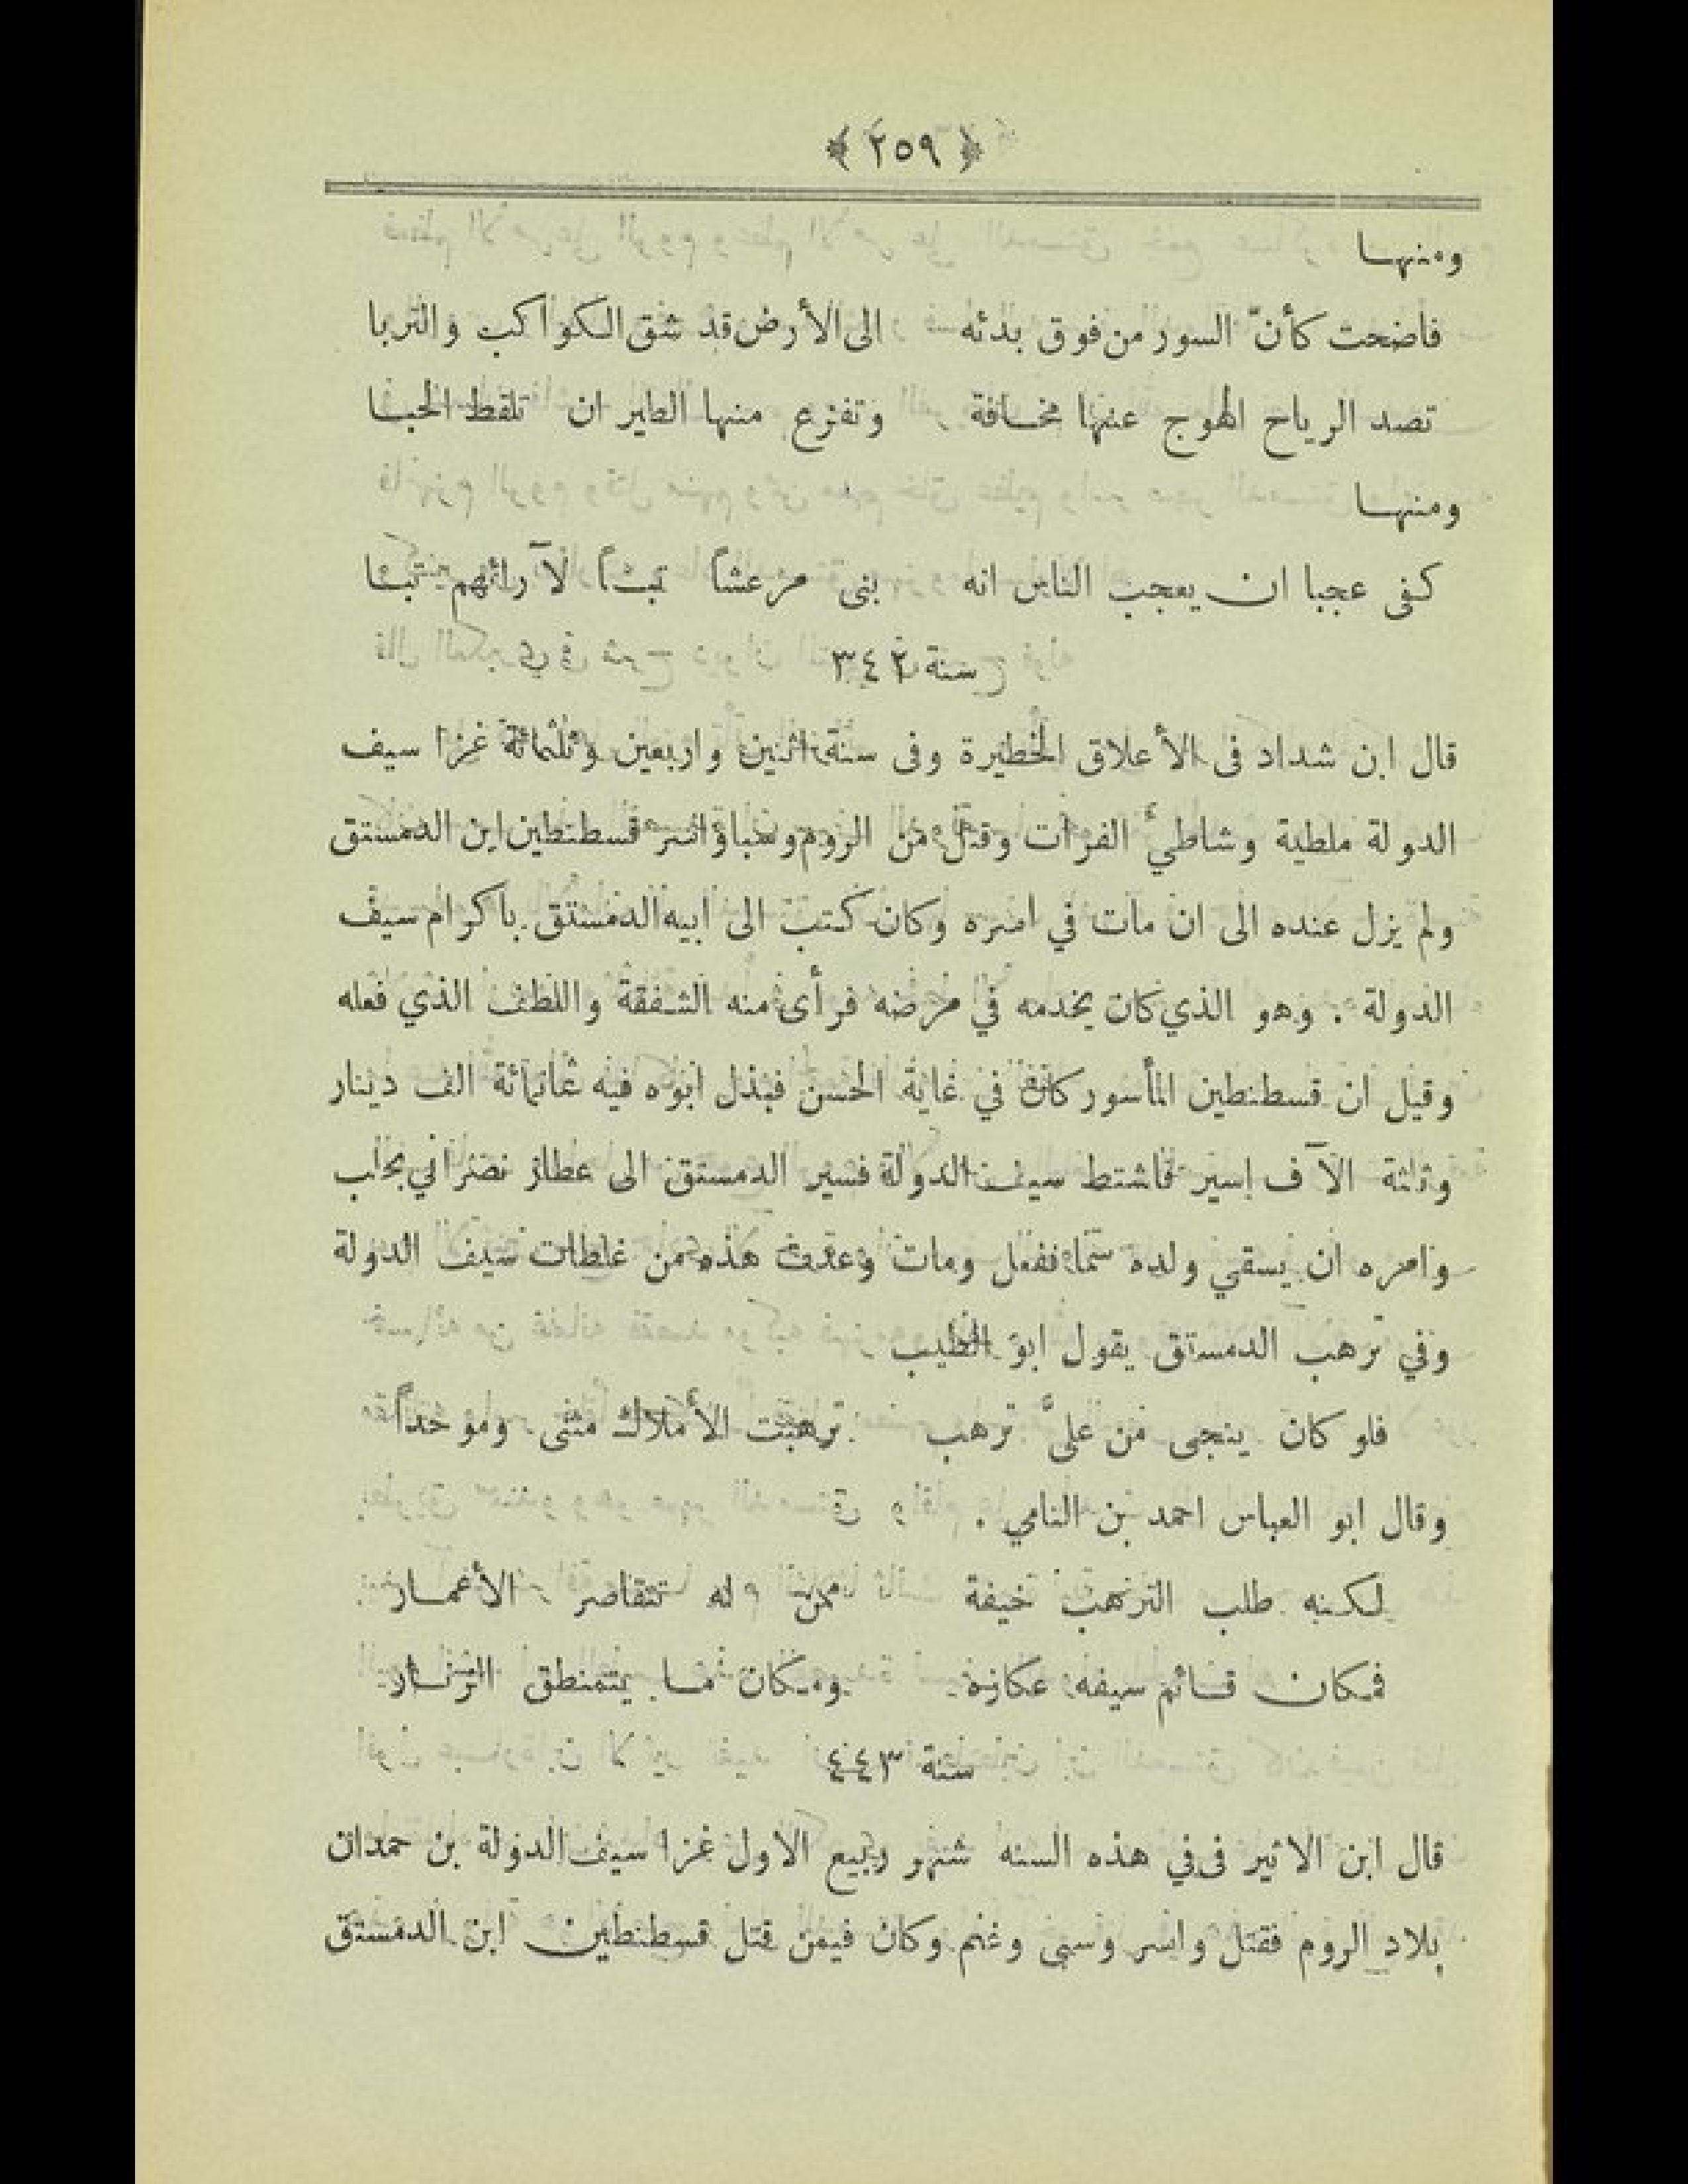 ﴿ ٢٥٩ ﴾
ومنهـا
فأضحت كأنّ السور من فوق بدئه الى الأرض قد شق الكواكب والتربا
تصد الرياح الهوج عنها مخـافة وتفزع منها الطير ان تلقط الحبـا
ومنهـا
كفى عجبا ان يعجب الناس انه بنى مرعشاً تبـاً لآرائهم تبـا
سنة ٣٤٢
قال ابن شداد فى الأعلاق الخطيرة وفى سنة اثنين واربعين وثلمائة غزا سيف
الدولة ملطية وشاطئ الفرات وقتل من الروم وسبا واسر قسطنطين ابن الدمستق
ولم يزل عنده الى ان مات في اسره وكان كتب الى ابيه الدمستق باكرام سيف
الدولة . وهو الذي كان يخدمه في مرضه فرأى منه الشفقة واللطف الذي فعله
وقيل ان قسطنطين المأسور كان في غاية الحسن فبذل ابوه فيه ثمانمائة الف دينار
وثلثة الآف اسير فاشتط سيف الدولة فسير الدمستق الى عطار نصراني بحلب
وامره ان يسقي ولده سمّا ففعل ومات وعدت هذه من غلطات سيف الدولة
وفي ترهب الدمستق يقول ابو الطيب
فلو كان ينجى من علىّ ترهب ترهبت الأملاك مثنى وموحداً
وقال ابو العباس احمد بن النامي .
لكـنه طلب الترهب خيفة ممن له تتقاصر الأعمـار
فمكان قـائم سيفه عكازه ومكان مـا يتمنطق الزنـار
سنة ٤٤٣
قال ابن الاثير فى في هذه السنه شهر ربيع الاول غزا سيف الدولة بن حمدان
بلاد الروم فقتل واسر وسبى وغنم وكان فيمن قتل قسطنطين ابن الدمستق